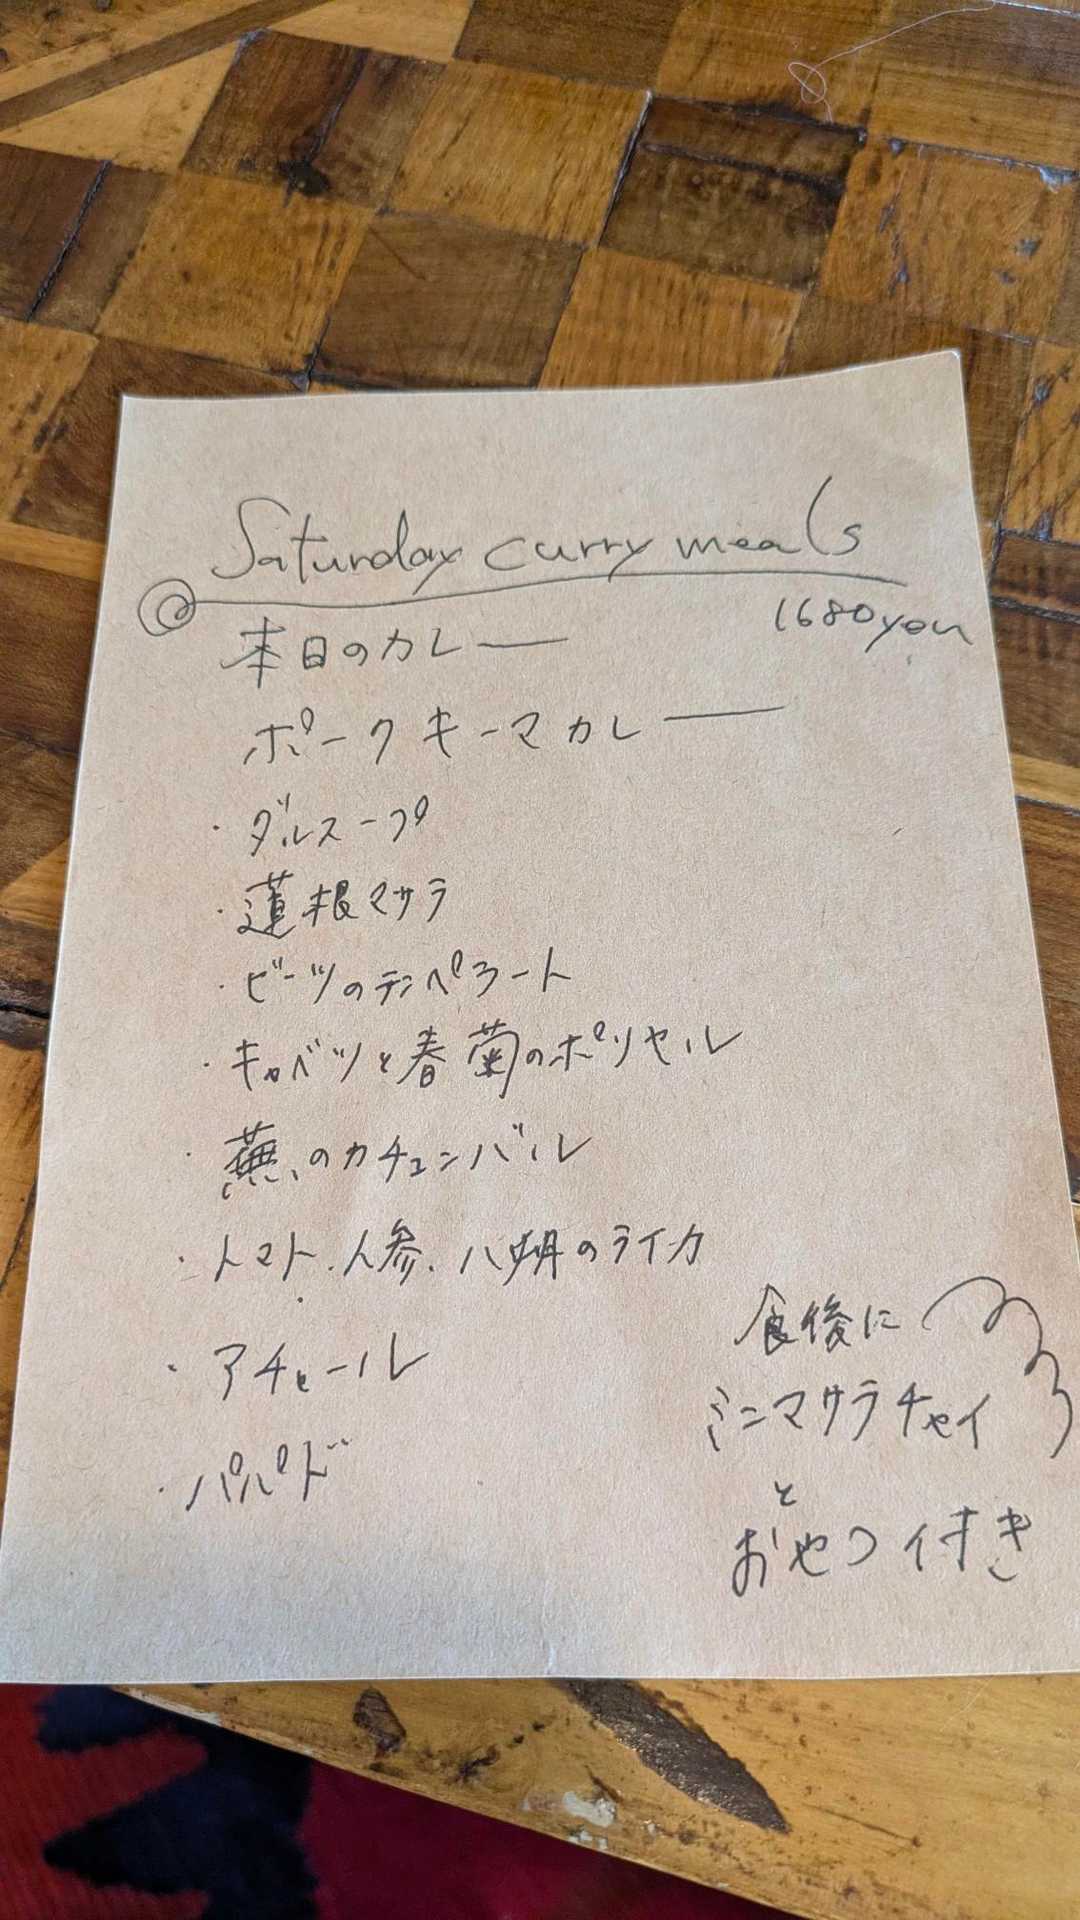 Saturday curry meals
1680yen
本日のカレー
ポークキーマカレー
・ダルスープ
・蓮根マサラ
・ビーツのテンペラート
・キャベツと春菊のポリヤル
・蕪のカチュンバル
・トマト、人参、八朔のライタ
・アチャール
・パパド
食後に
ミニマサラチャイ
と
おやつ付き